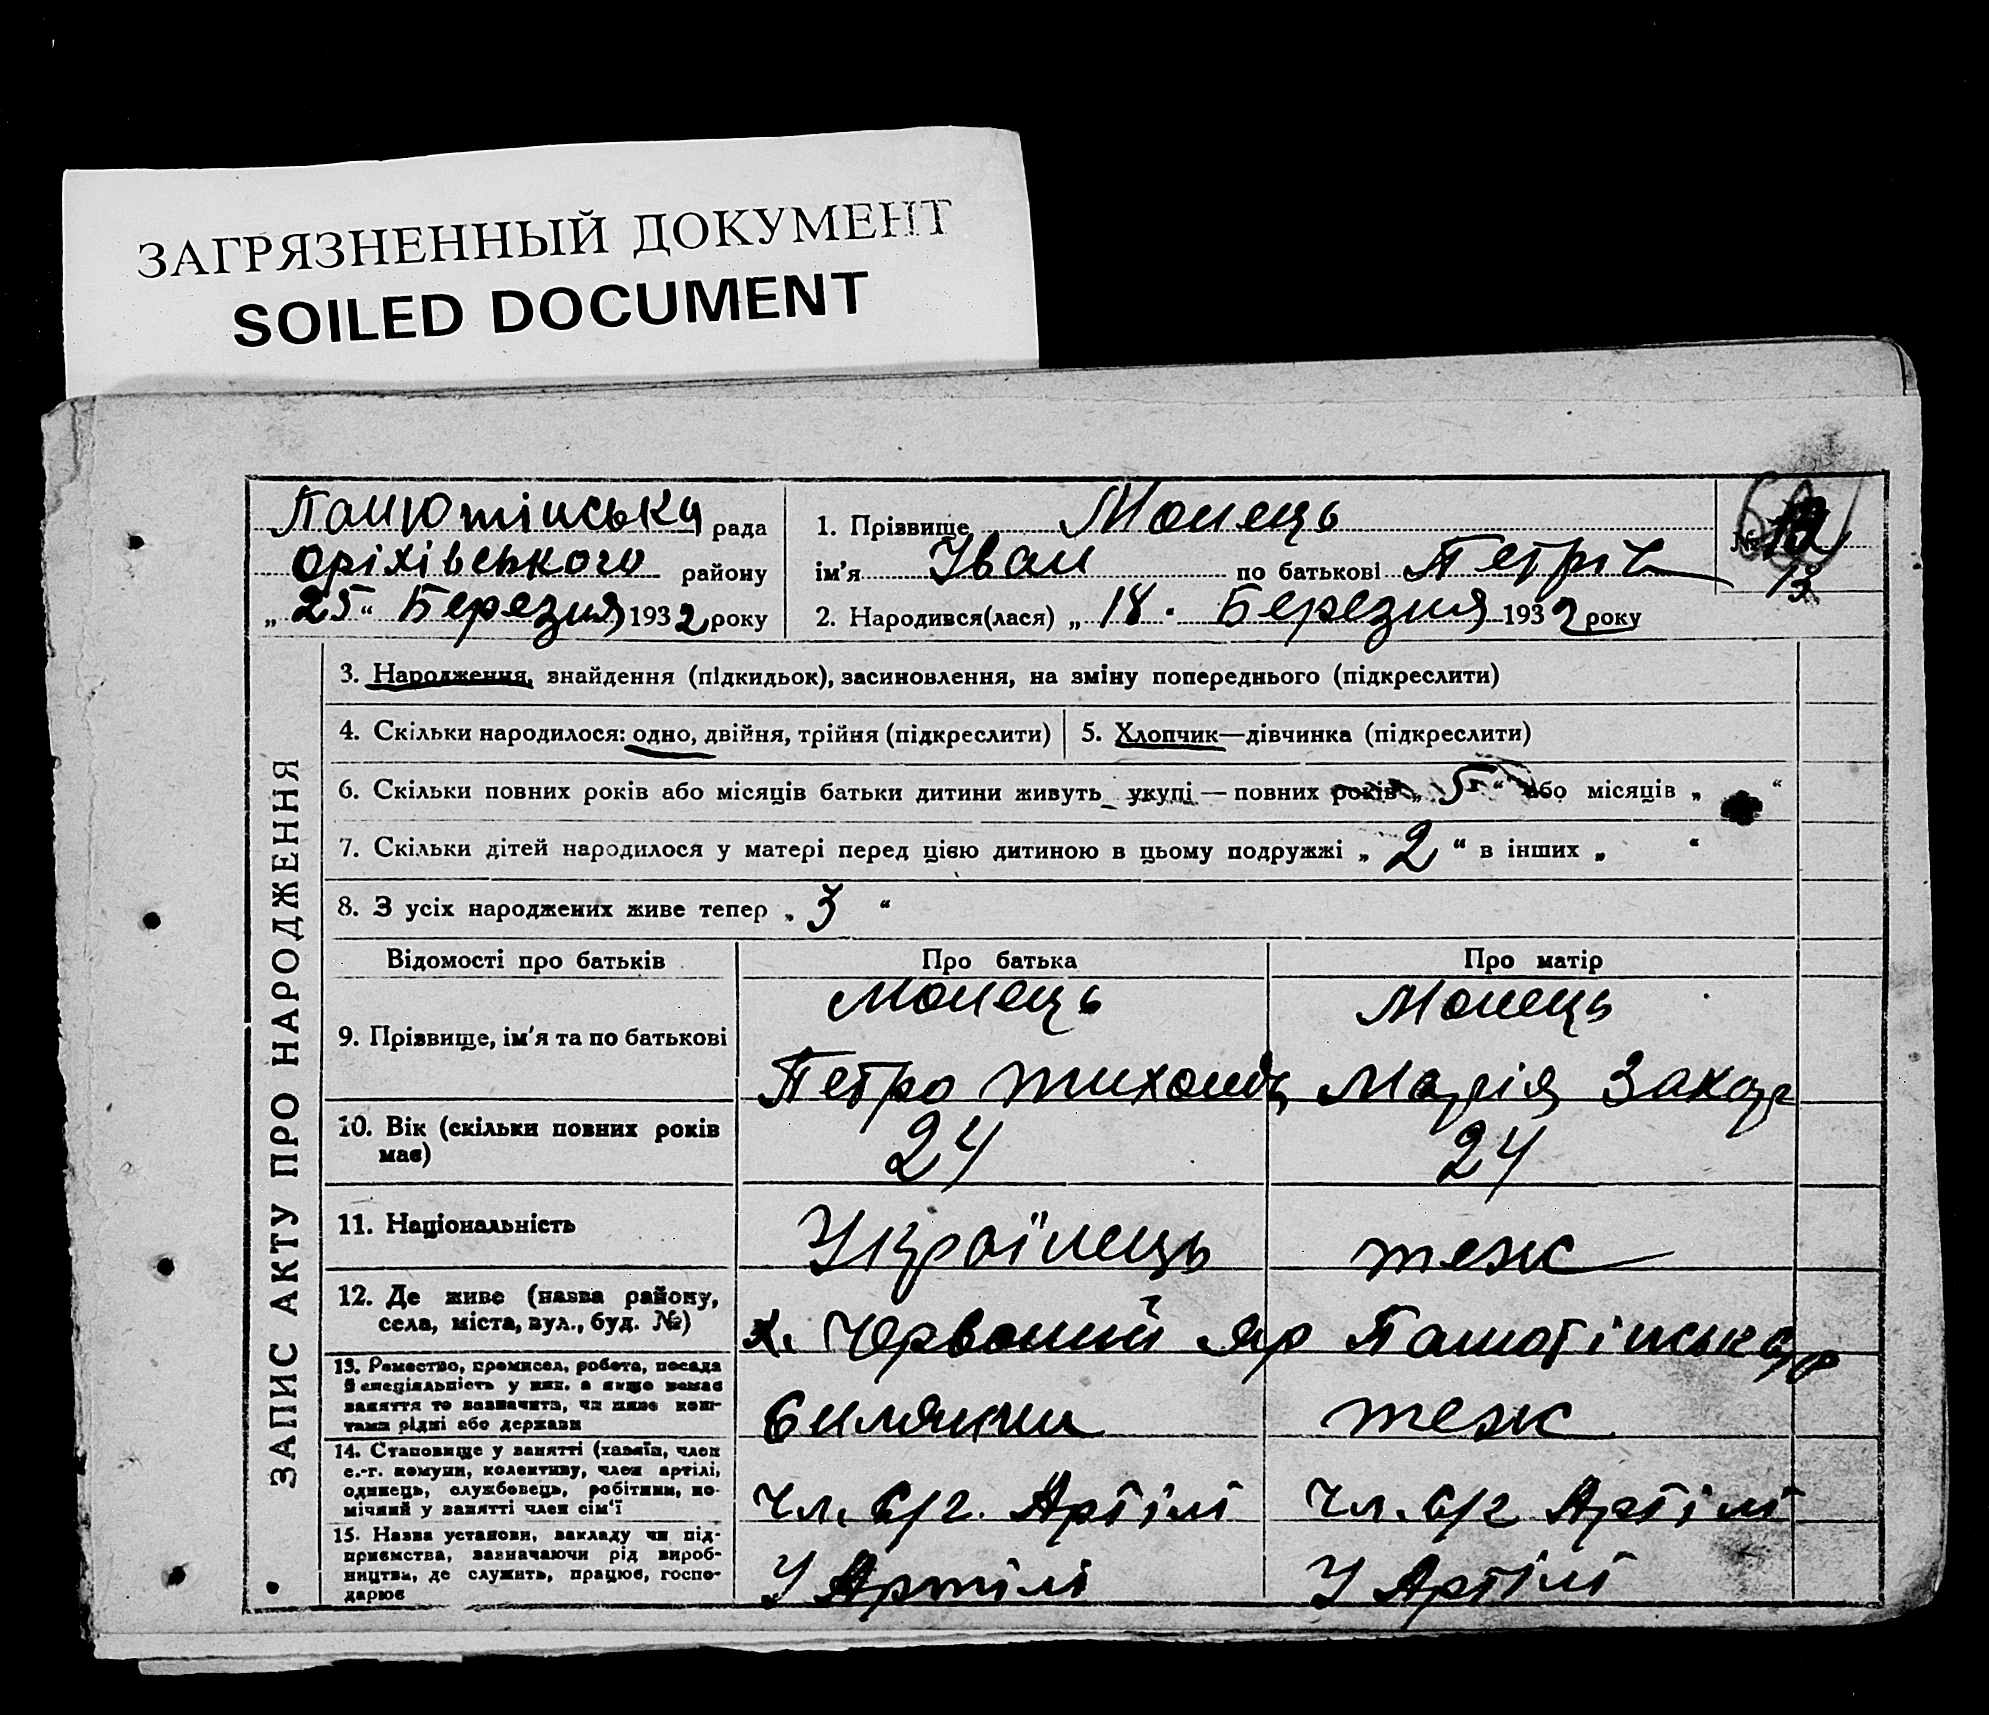 ЗАГРЯЗНЕННЫЙ ДОКУМЕНТ
SOILED DOCUMENT
Панютінська рада
Оріхівського району
„ 25 “ Березня 1932 року
1. Прізвище Монець
ім'я Іван по батькові Петріч
2. Народився(лася) „ 18 . Березня 1932 року
№ 12
13
ЗАПИС АКТУ ПРО НАРОДЖЕННЯ
3. Народження, знайдення (підкидьок), засиновлення, на зміну попереднього (підкреслити)
4. Скільки народилося: одно, двійня, трійня (підкреслити)
5. Хлопчик—дівчинка (підкреслити)
6. Скільки повних років або місяців батьки дитини живуть укупі — повних років „ 5 “ або місяців „ “
7. Скільки дітей народилося у матері перед цією дитиною в цьому подружжі „ 2 “ в інших „ “
8. З усіх народжених живе тепер „ 3 “
Відомості про батьків Про батька Про матір
9. Прізвище, ім'я та по батькові
Монець
Петро Тихонов
Монець
Марія Захар
10. Вік (скільки повних років
має)
24
24
11. Національність
Українець
теж
12. Де живе (назва району,
села, міста, вул., буд. №)
х. Червоний Яр Панютінська
13. Ремество, промисел, робота, посада
й спеціяльність у них, а якщо немає
заняття то зазначити, чи живе кош-
тами рідні або держави
теж
14. Становище у занятті (хазяїн, член
с.-г. комуни, колективу, член артілі,
одинець, службовець, робітник, по-
мічний у занятті член сім'ї
Чл. С/г. Артілі
Чл. С/г Артілі
15. Назва установи, закладу чи під-
приємства, зазначаючи рід вироб-
ництва, де служить, працює, госпо-
дарює
У Артілі
У Артілі